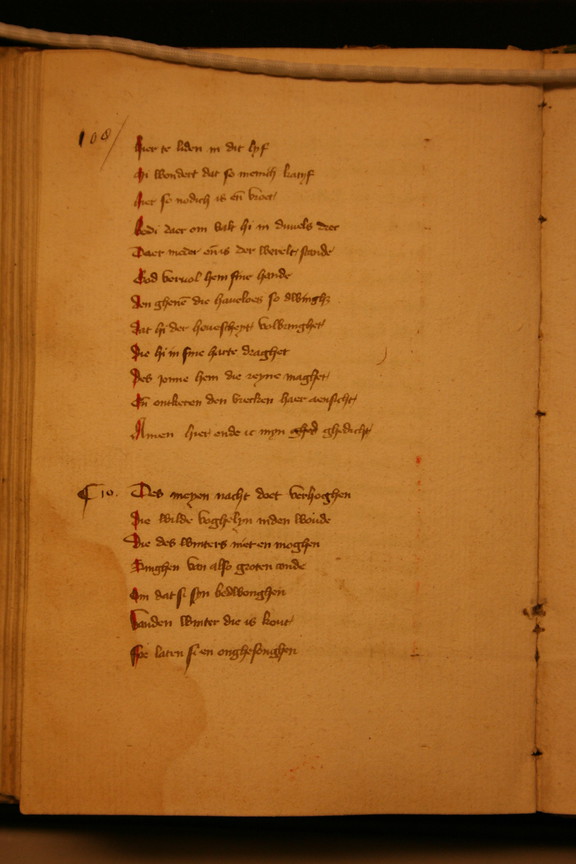 108/
Hier te liden in dit lyf
Mi wondert dat so menich katyf
Hier so nodich is en̄ vroet
Bedi daer om valt hi in duvels
Daer meder en̄ is der werelt scande
God vervol hem sine hande
Den ghenē die haveloes so dwinght
Dat hi der hovescheyt volbringhet
Die hi in sine harte draghet
Des jonne hem die reyne maghet
En̄ ontkeren den vrecken haer aensicht
Amen hier ende ic myn ghedicht
¶ 10. Des meyen nacht doet verhoghen
Die wilde voghelyn inden woude
Die des winters niet en moghen
Singhen van also groten coude
Om dat si syn bedwonghen
Vanden winter die is kout
Soe laten si en onghesonghen